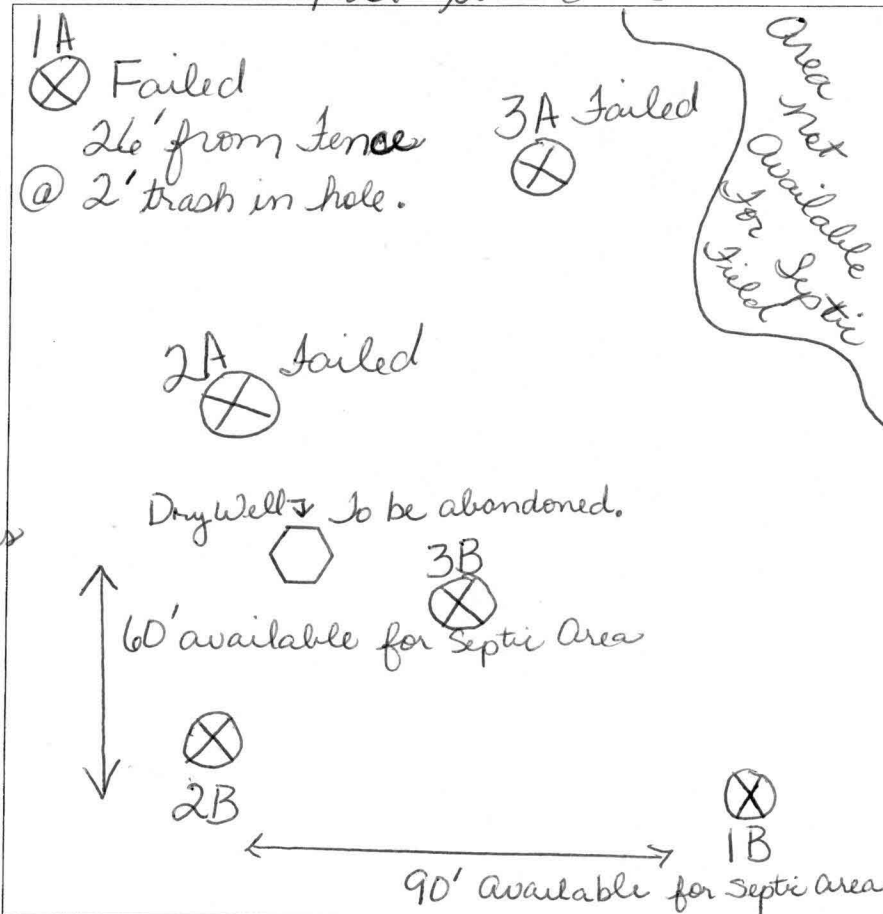 1A
Failed
26' from Fence
@ 2' trash in hole.
3A Failed
Area
Not
Available
For Septic
Field
2A Failed
Dry Well To be abandoned.
3B
60' available for Septic Area
2B
1B
90' Available for Septic Area